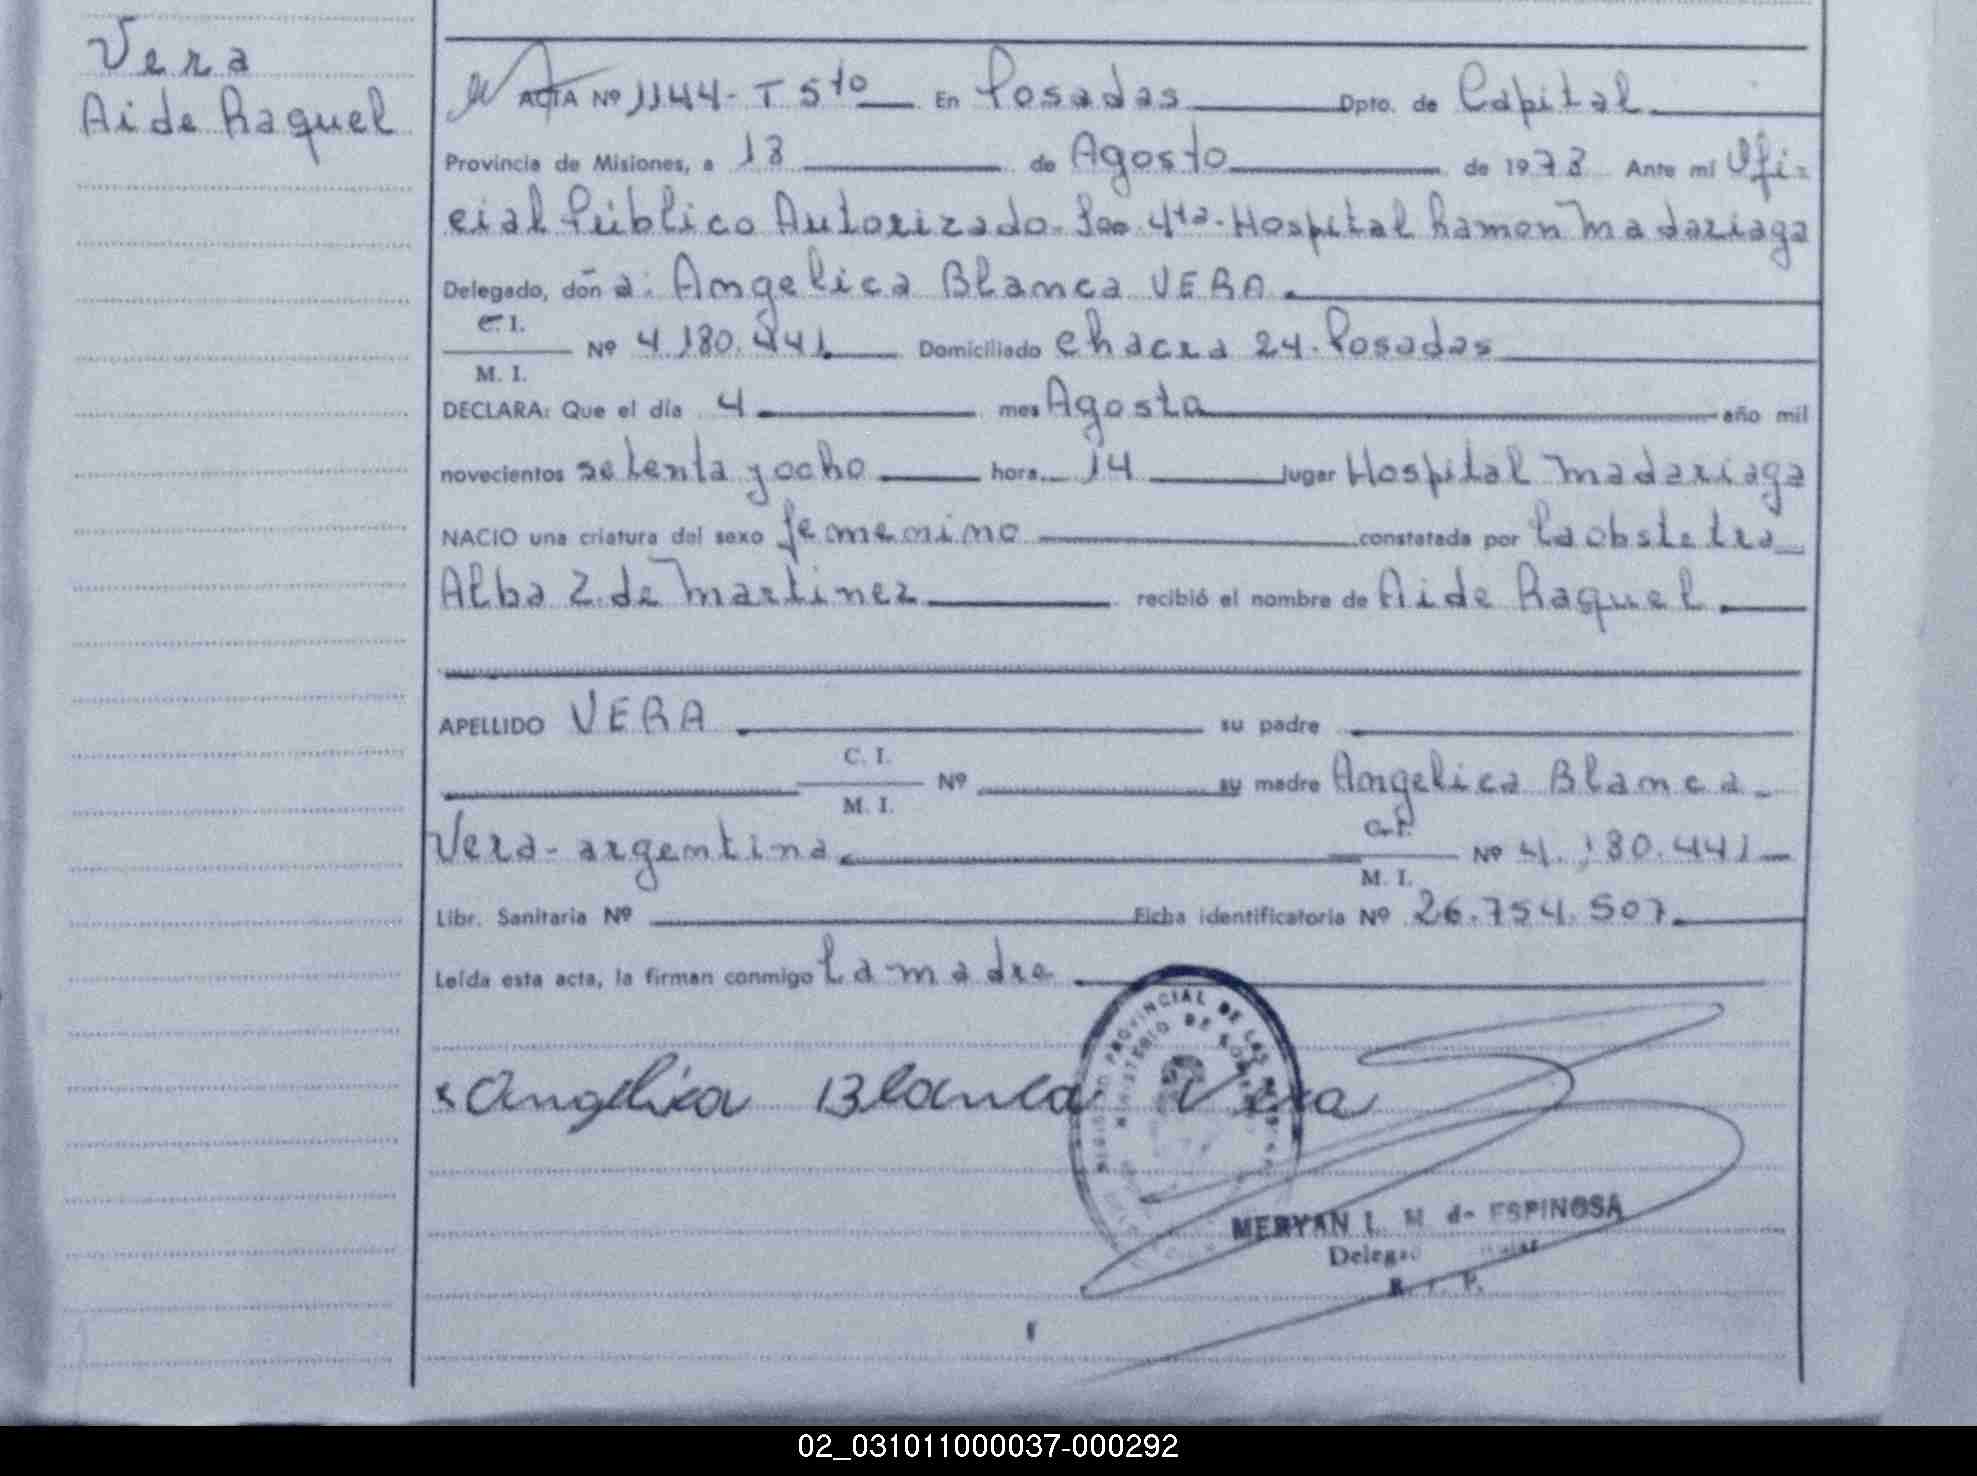 Vera
Aide Raquel
ACTA Nº 1144- T 5to En Posadas Dpto. de Capital
Provincia de Misiones, a 18 de Agosto de 1978 Ante mi Ofi-
cial Público Autorizado. 4ta- Hospital Ramon Madariaga
Delegado, doña: Angelica Blanca VERA.
C. I.
Nº 4.180.441 Domiciliado Chacra 24. Posadas
M. I.
DECLARA: Que el día 4 mes Agosto año mil
novecientos setenta y ocho hora 14 lugar Hospital Madariaga
NACIO una criatura del sexo femenino constatada por la obstetra
Alba Z. de Martinez recibió el nombre de Aide Raquel.
APELLIDO VERA su padre
C. I.
Nº su madre Angelica Blanca
M. I.
Vera- argentina C. I. Nº 4.180.441
M. I.
Libr. Sanitaria Nº Ficha identificatoria Nº 26.754.507
Leída esta acta, la firman conmigo la madre
Angelica Blanca Vera
REGISTRO PROVINCIAL DE LAS
MINISTERIO DE
MERYAN I. M. de ESPINOSA
R. P.
02_031011000037-000292